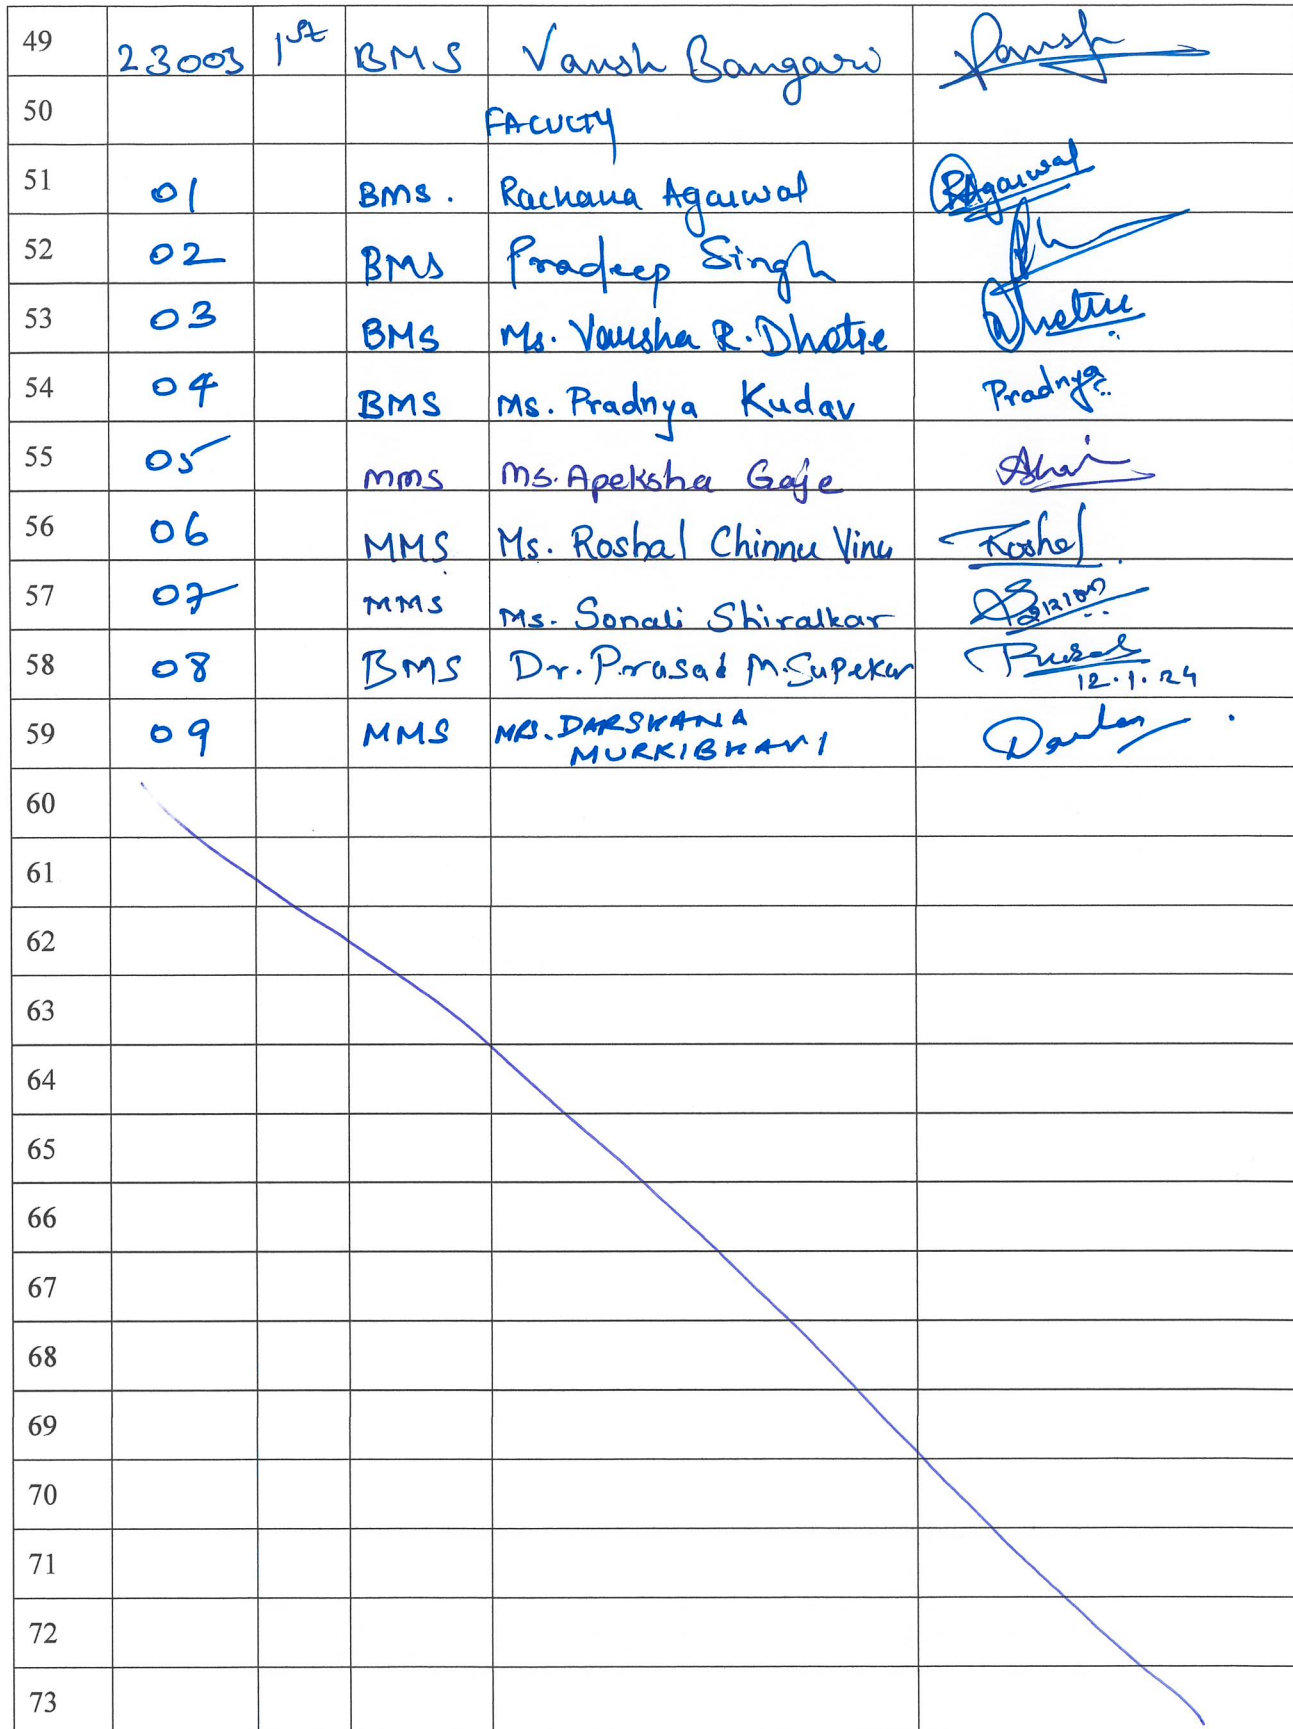 49 23003 1st BMS Vansh Bangari Vansh
50 FACULTY
51 01 BMS. Rachana Agarwal RAgarwal
52 02 BMS Pradeep Singh
53 03 BMS Ms. Varsha R. Dhatre Dhatre
54 04 BMS Ms. Pradnya Kudav Pradnya
55 05 MMS Ms. Apeksha Gaje
56 06 MMS Ms. Roshal Chinnu Vinu Roshal
57 07 MMS Ms. Sonali Shiralkar
58 08 BMS Dr. Prasad M. Supekar Prasad
12.1.24
59 09 MMS MRS. DARSHANA
MURKIBHAVI
60
61
62
63
64
65
66
67
68
69
70
71
72
73